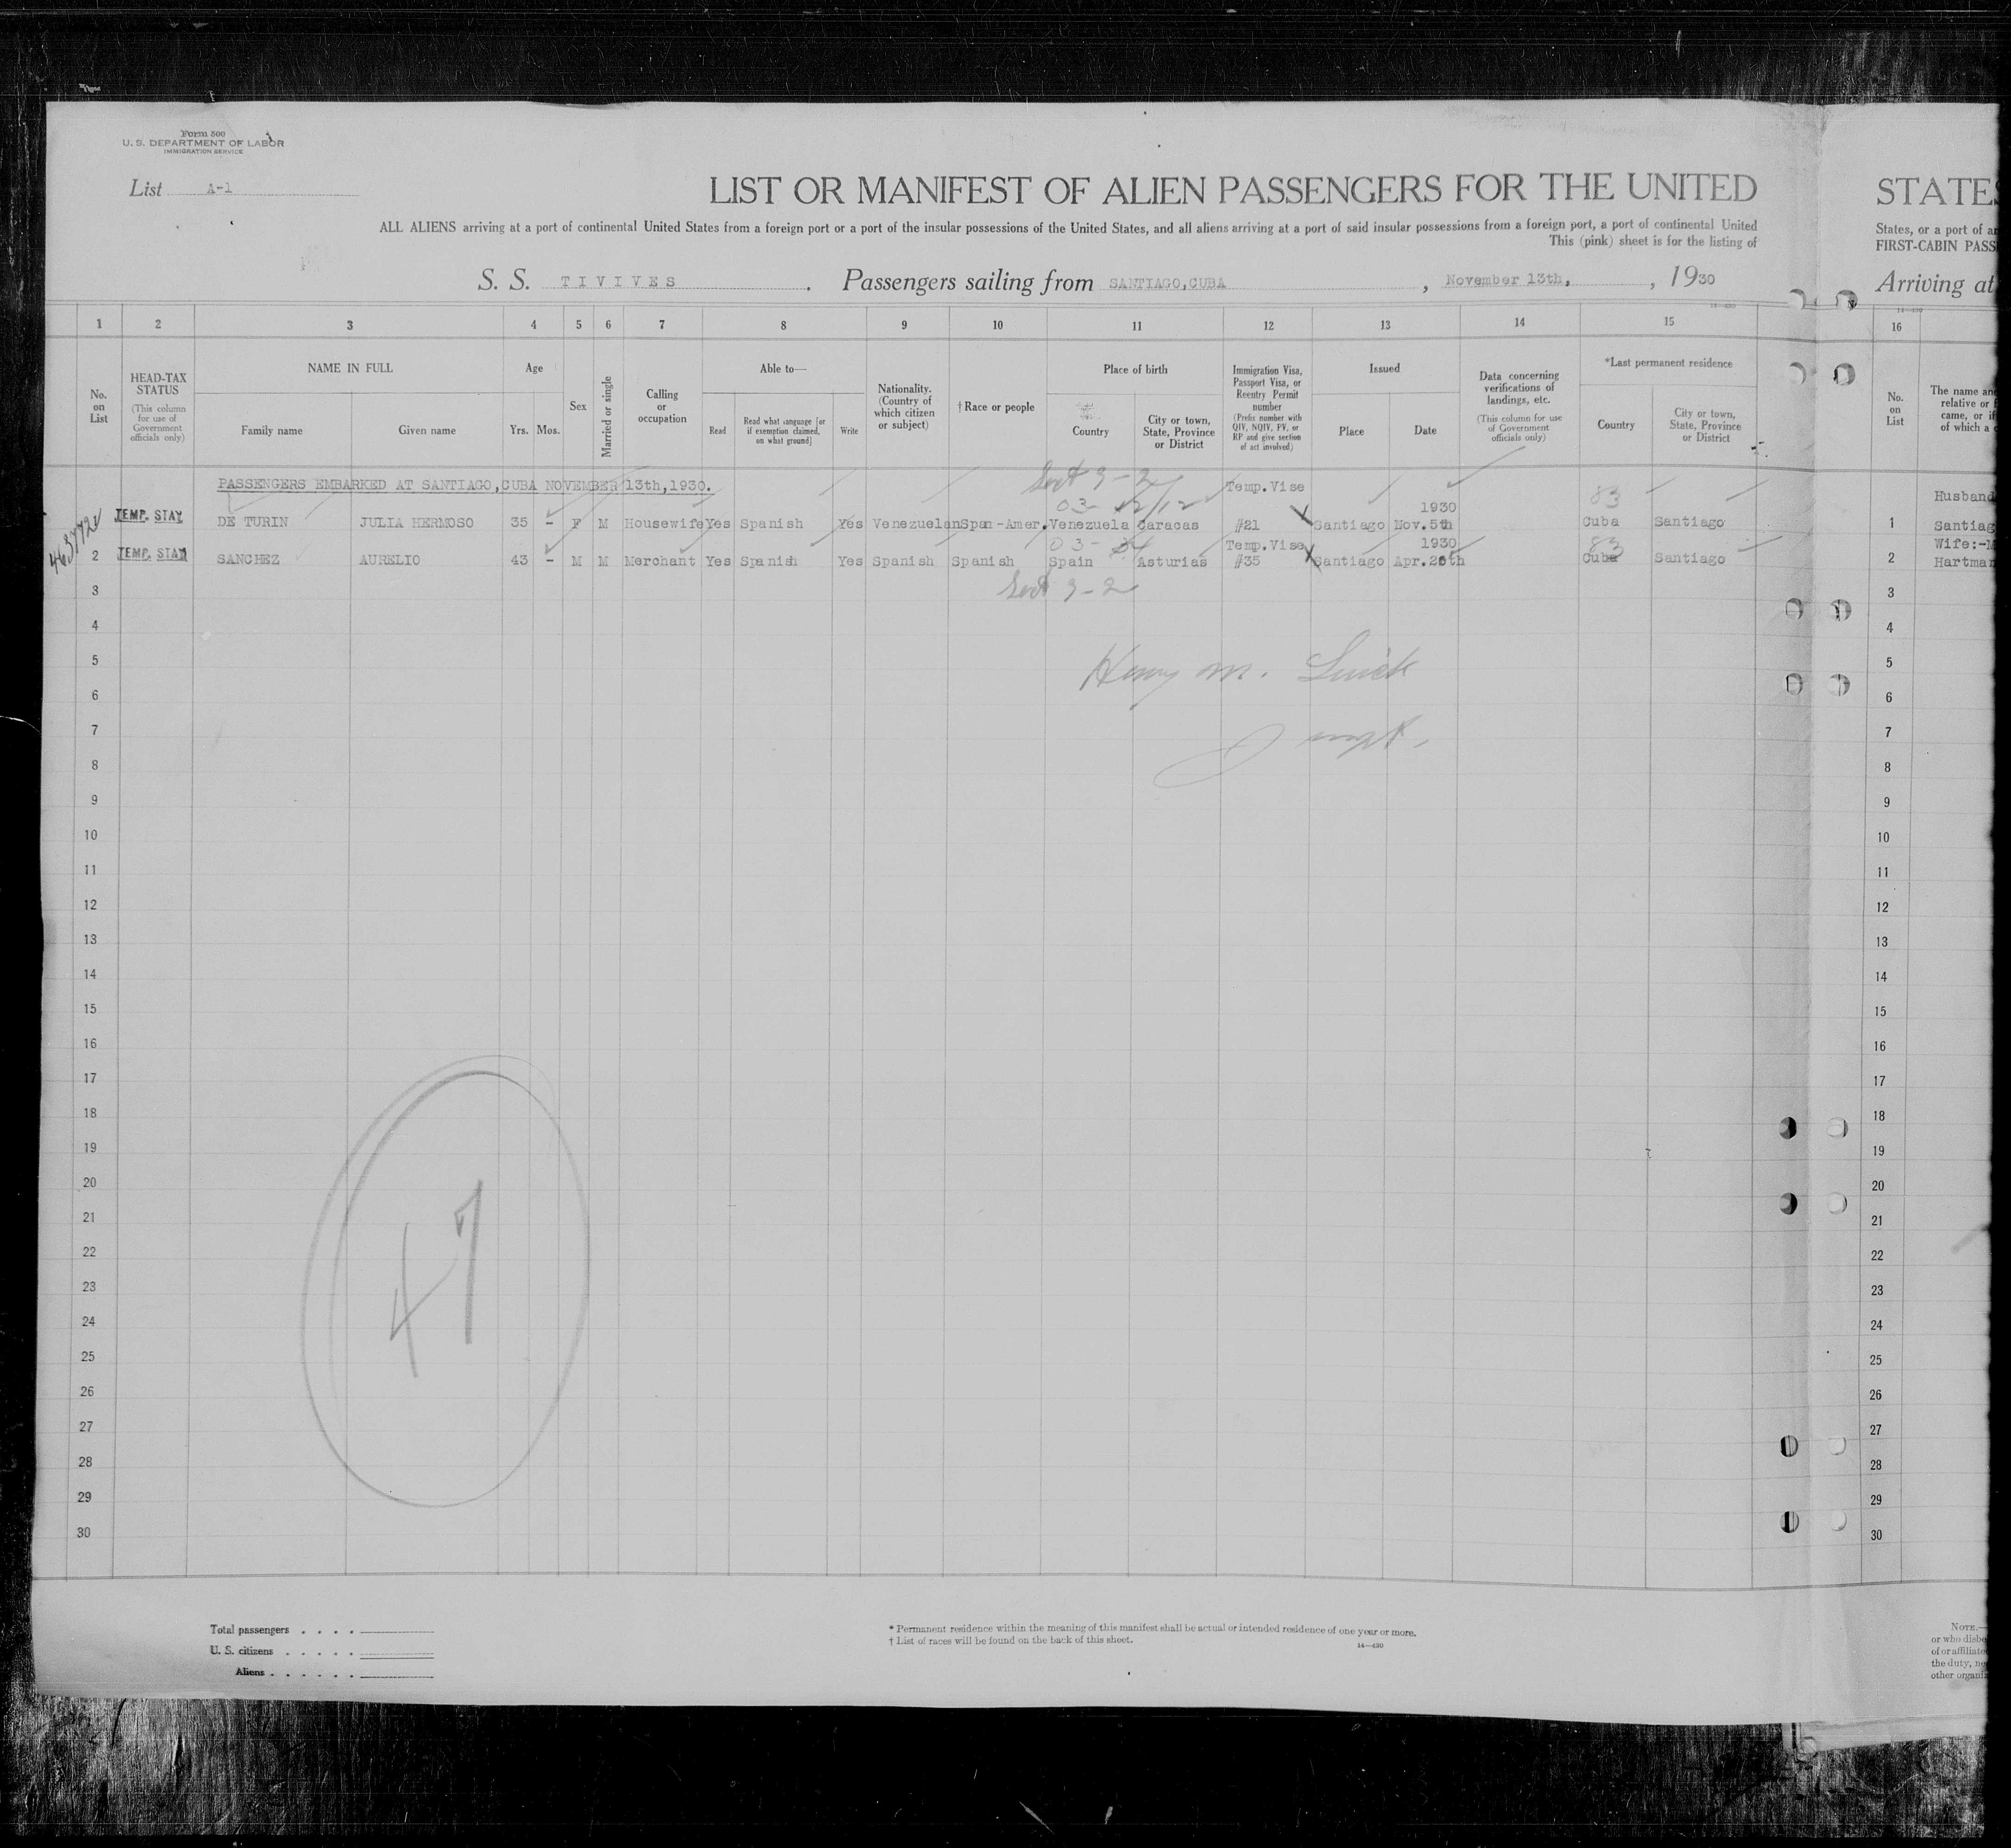 Form 500
U. S. DEPARTMENT OF LABOR
IMMIGRATION SERVICE
List A-1
LIST OR MANIFEST OF ALIEN PASSENGERS FOR THE UNITED
STATES
ALL ALIENS arriving at a port of continental United States from a foreign port or a port of the insular possessions of the United States, and all aliens arriving at a port of said insular possessions from a foreign port, a port of continental United
States, or a port of
This (pink) sheet is for the listing of
FIRST-CABIN PASS
S. S. TIVIVES . Passengers sailing from SANTIAGO, CUBA , November 13th, , 1930
Arriving at
1 2 3 4 5 6 7 8 9 10 11 12 13 14 15 16
No. on List
HEAD-TAX STATUS
(This column for use of Government officials only)
NAME IN FULL
Family name
Given name
Age
Yrs. Mos.
Sex
Married or single
Calling or occupation
Able to—
Read
Read what language [or if exemption claimed, on what ground]
Write
Nationality. (Country of which citizen or subject)
†Race or people
Place of birth
Country
City or town, State, Province or District
Immigration Visa, Passport Visa, or Reentry Permit number
(Prefix number with QIV, NQIV, PV, or RP and give section of act involved)
Issued
Place
Date
Data concerning verifications of landings, etc.
(This column for use of Government officials only)
*Last permanent residence
Country
City or town, State, Province or District
No. on List
The name and
relative or
came, or if
of which a
PASSENGERS EMBARKED AT SANTIAGO, CUBA NOVEMBER 13th, 1930.
Sect 3-2
03- 12/12
Temp. Vise
1930
83
Husband
1 TEMP. STAY DE TURIN JULIA HERMOSO 35 - F M Housewife Yes Spanish Yes Venezuelan Span-Amer. Venezuela Caracas #21 Santiago Nov. 5th Cuba Santiago 1 Santiag
03-
Temp. Vise
1930
83
Wife:-M
2 TEMP. STAY SANCHEZ AURELIO 43 - M M Merchant Yes Spanish Yes Spanish Spanish Spain Asturias #35 Santiago Apr. 28th Cuba Santiago 2 Hartman
Sect 3-2
3 3
4 4
5 Henry M. 5
6 6
7 7
8 8
9 9
10 10
11 11
12 12
13 13
14 14
15 15
16 16
17 17
18 18
19 19
20 20
21 21
22 22
23 23
24 24
25 25
26 26
27 27
28 28
29 29
30 30
47
Total passengers . . . .
U. S. citizens . . . . .
Aliens . . . . . .
* Permanent residence within the meaning of this manifest shall be actual or intended residence of one year or more.
† List of races will be found on the back of this sheet.
14—430
NOTE.—
or who disbe
of or affiliate
the duty, ne
other organi